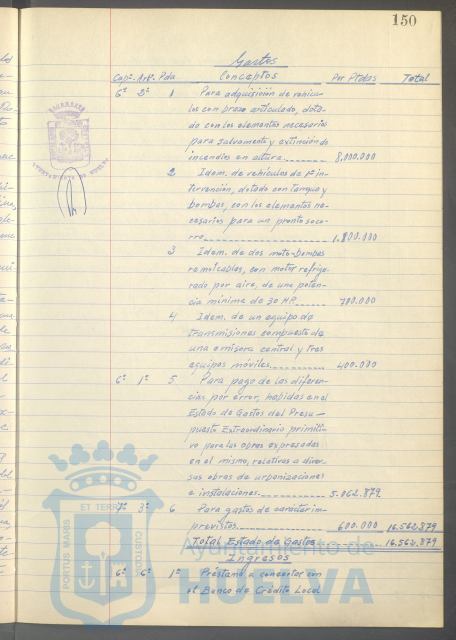 150
Gastos
Capº. Artº. Pda. Conceptos Por Ptdas Total
6º 5º 1 Para adquisición de vehícu-
los con brazo articulado, dota-
do con los elementos necesarios
para salvamento y extinción de
incendios en altura 8.000.000
2 Idem. de vehículos de 1ª in-
tervención, dotado con tanque y
bombas, con los elementos ne-
cesarios para un pronto soco-
rro 1.800.000
3 Idem. de dos moto-bombas
remolcables, con motor refrige-
rado por aire, de una poten-
cia mínima de 30 H.P. 700.000
4 Idem. de un equipo de
transmisiones compuesto de
una emisora central y tres
equipos móviles 400.000
6º 1º 5 Para pago de las diferen-
cias por error, habidas en el
Estado de Gastos del Presu-
puesto Extraordinario primiti-
vo para las obras expresadas
en el mismo, relativas a diver-
sas obras de urbanizaciones
e instalaciones 5.062.879
7º 3º 6 Para gastos de carácter im-
previstos 600.000 16.562.879
Total Estado de Gastos 16.562.879
Ingresos
6º 6º 1º Préstamo a concertar con
el Banco de Crédito Local
Ayuntamiento de
HUELVA
PORTUS MARIS ET TERRAE CUSTODIA